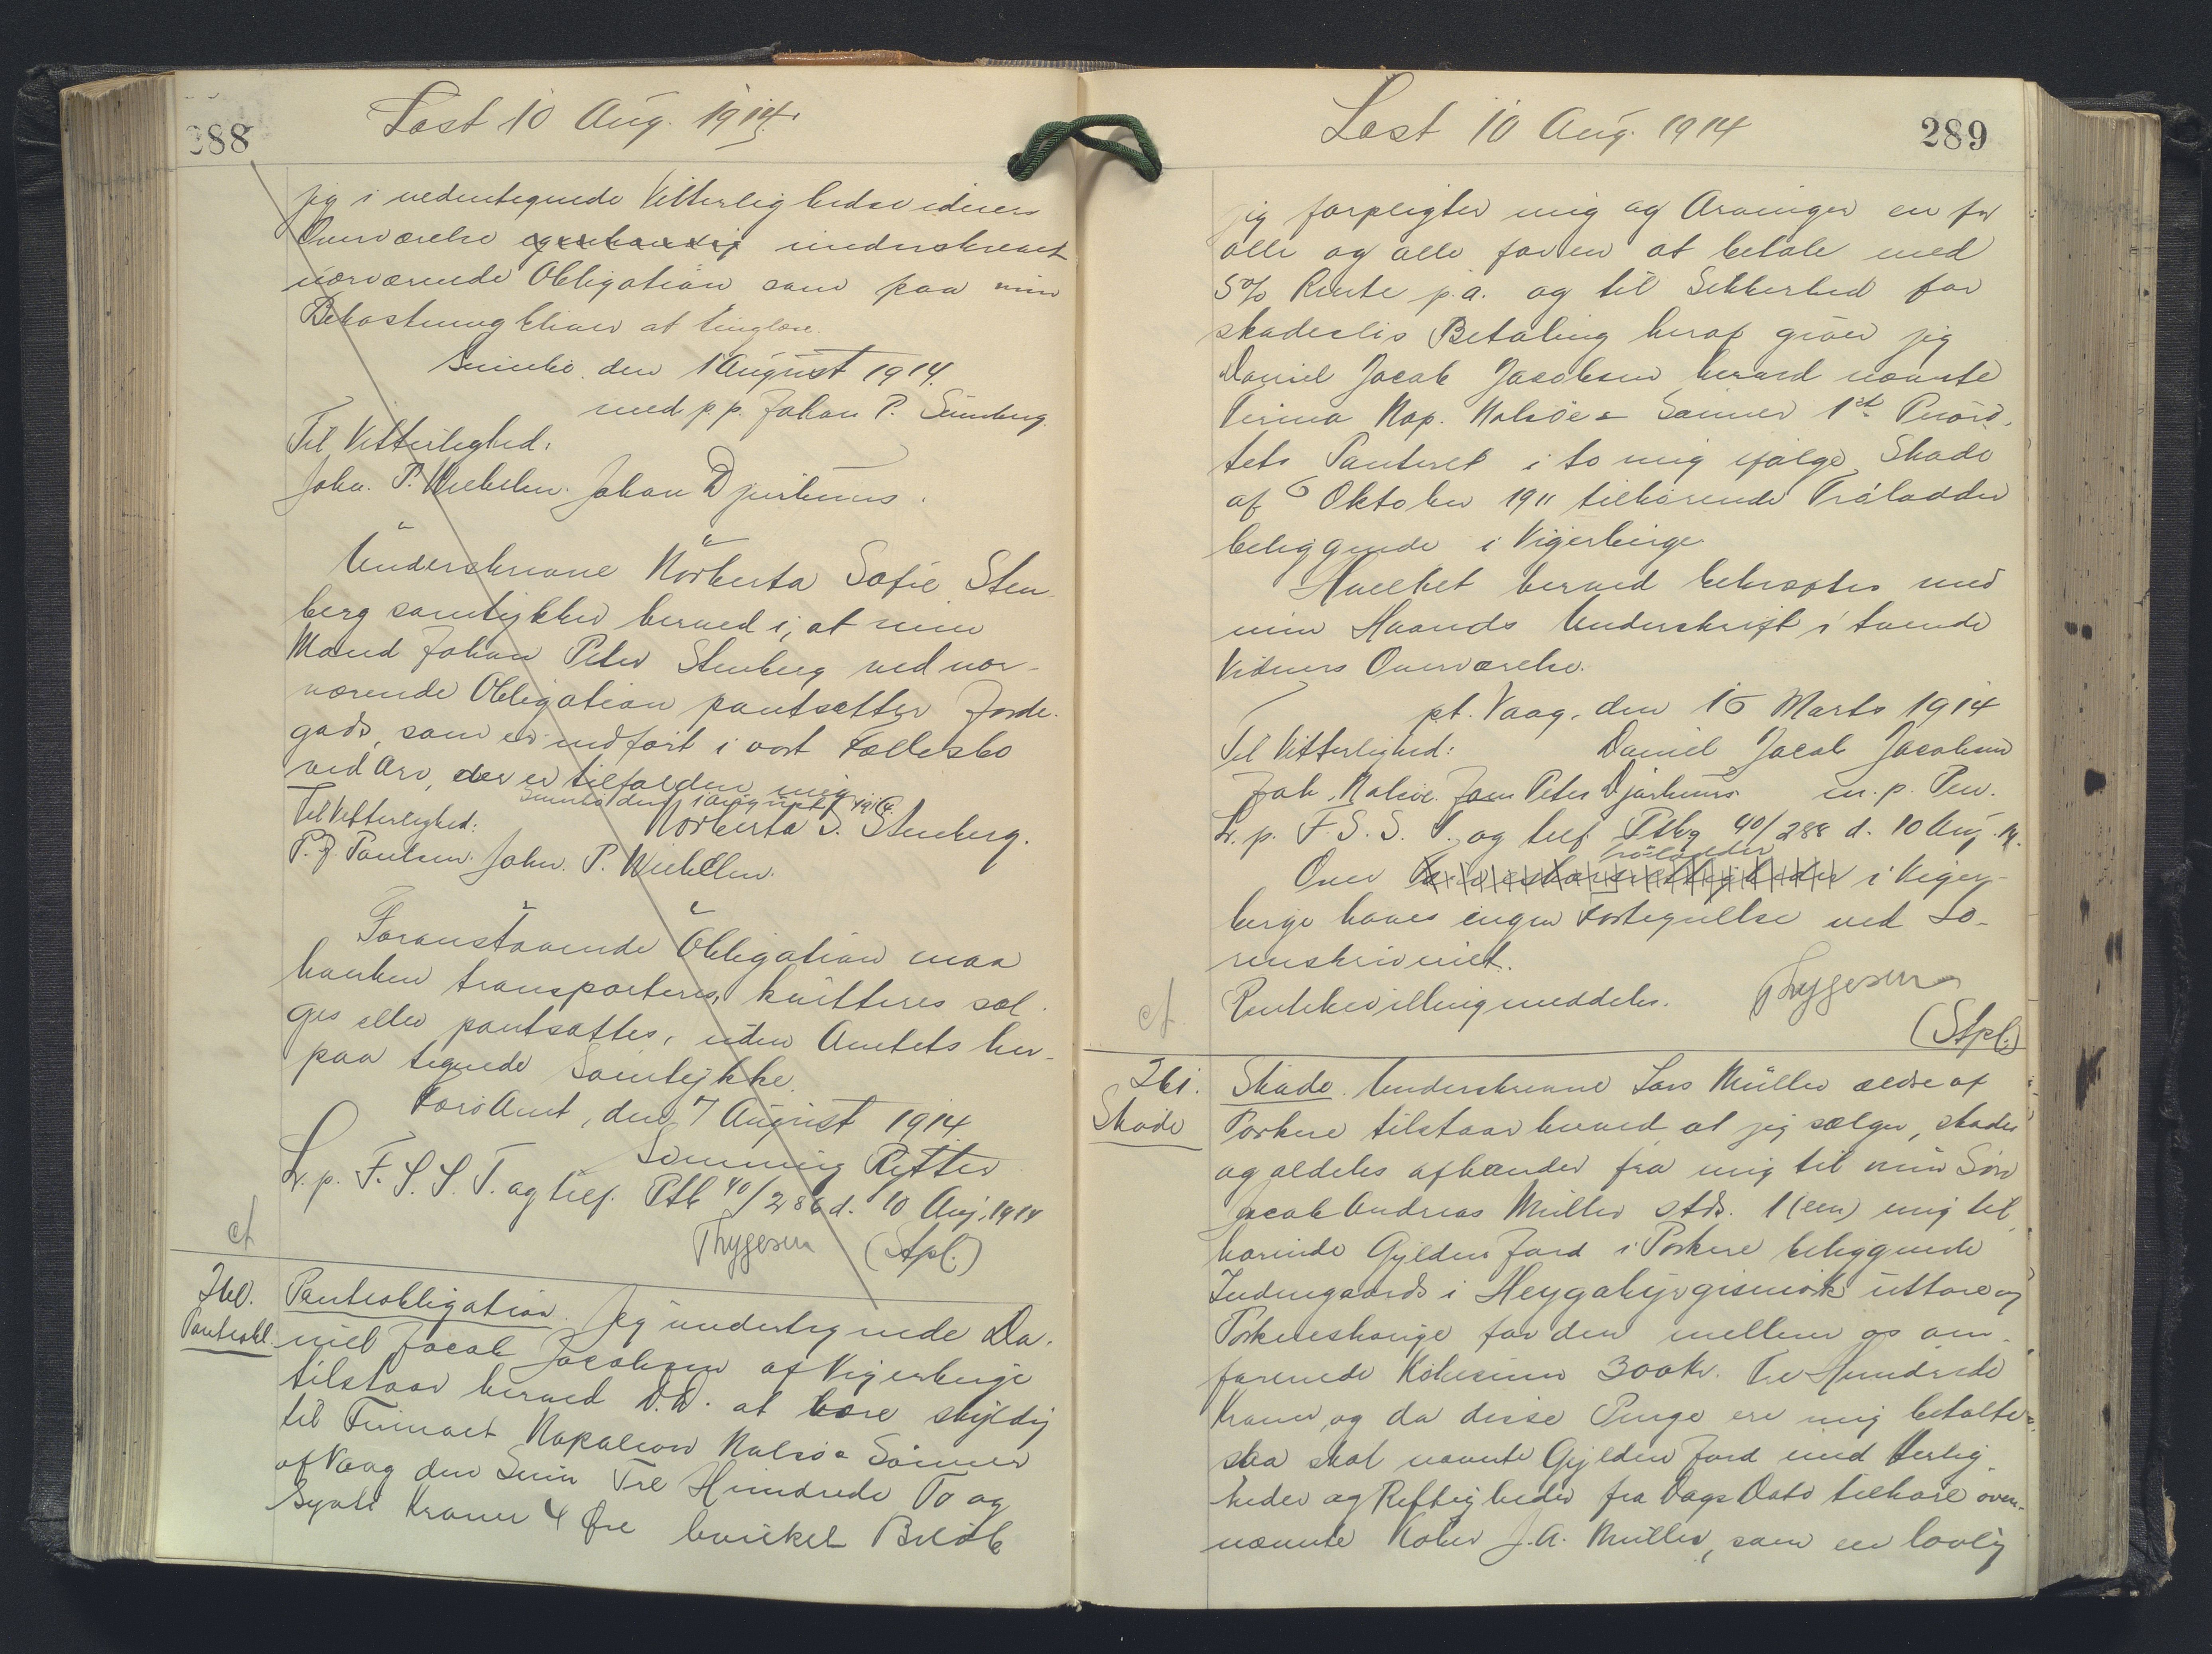 288
Læst 10 Aug. 1914.
jeg i nedentegnede Vitterlighedsvidners
Overværelse egenhændig underskrevet
nærværende Obligation som paa min
Bekostning bliver at tinglæse.
Sumbø den 1 August 1914.
med p. p. Johan P. Stenberg.
Til Vitterlighed:
John. P. Weihe Johan Djurhuus.
Underskrevne Norberta Sofie Sten-
berg samtykker herved i, at min
Mand Johan Peter Stenberg ved nær-
værende Obligation pantsætter Jorde-
gods, som er indført i vort Fællesbo
ved Arv, der er tilfalden mig.
Sumbø den 1 August 1914.
Til Vitterlighed: Norberta S. Stenberg.
P. J. Poulsen. John. P.
Foranstaaende Obligation maa
hverken transporteres, kvitteres sæl-
ges eller pantsættes, uden Amtets her-
paa tegnede Samtykke.
Færø Amt, den 7 August 1914
Svenning Rytter
L. p. F. S. S. T. og tilf. Ptb 40/286 d. 10 Aug. 1914
Thygesen (Stpl.)
cf
260. Panteobligation. Jeg undertegnede Da-
Panteobl. niel Jacob Jacobsen af Vigerberge
tilstaar herved D. D. at være skyldig
til Firmaet Napoleon Nolsøe Sønner
af Vaag den Sum Tre Hundrede To og
Syvti Kroner 4 Øre hvilket Beløb
289
Læst 10 Aug. 1914
jeg forpligter mig og Arvinger en for
alle og alle for en at betale med
5% Rente p.a. og til Sikkerhed for
skadeslis Betaling heraf giver jeg
Daniel Jacob Jacobsen herved nævnte
Firma Nap. Nolsøe & Sønner 1st Priori-
tets Panteret i to mig ifølge Skøde
af 6 Oktober 1911 tilhørende Trålodder
beliggende i Vigerberge
Hvilket herved bekræftes med
min Haands Underskrift i tvende
Vidners Overværelse.
pt. Vaag, den 16 Marts 1914
Til Vitterlighed: Daniel Jacob Jacobsen
Joh. Nolsøe. Joen Peter Djurhuus m. p. Pen.
L. p. F. S. S. T. og tilf. Ptbg 40/288 d. 10 Aug. 14.
trålodder
Over i Viger-
berge haves ingen Fortegnelse ved So-
renskriveriet.
cf Rentebevilling meddeles. Thygesen
(Stpl.)
261. Skøde. Underskrevne Lars Müller ældre af
Skøde Porkere tilstaar herved at jeg sælger, skøder
og aldeles afhænder fra mig til min Søn
Jacob Andreas Müller stds. 1 (een) mig til-
hørende Gylden Jord i Porkere beliggende
Indengaards i uttare og
Porkereshauge for den mellem os om-
førenede Købesum 300 Kr. Tre Hundrede
Kroner, og da disse Penge ere mig betalte
saa skal nævnte Gylden Jord med Herlig-
heder og Rettigheder fra Dags Dato tilhøre oven-
nævnte Køber J. A. Müller, som en lovlig